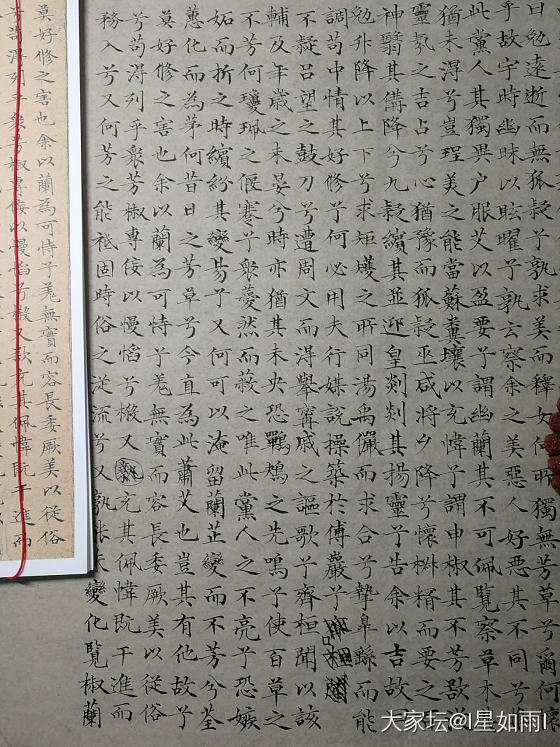 曰勉遠逝而無狐疑兮孰求美而釋女何所獨無芳草兮爾何懷
乎故宇時幽昧以眩曜兮孰云察余之美惡人好惡其不同兮
此黨人其獨異户服艾以盈要兮謂幽蘭其不可佩覽察草木
猶未得兮豈珵美之能當蘇糞壤以充幃兮謂申椒其不芳欲從
靈氛之吉占兮心猶豫而狐疑巫咸將夕降兮懷椒糈而要之
神翳其備降兮九疑繽其並迎皇剡剡其揚靈兮告余以吉故曰
勉升降以上下兮求矩矱之所同湯禹儼而求合兮摯臯繇而能
調苟中情其好修兮何必用夫行媒說操築於傅巖兮
不疑呂望之鼓刀兮遭周文而得舉甯戚之謳歌兮齊桓聞以該
輔及年歲之未晏兮時亦猶其未央恐鴂之先鳴兮使百草之
不芳何瓊珮之偃蹇兮衆薆然而蔽之唯此黨人之不亮兮恐嫉
妬而折之時繽紛其變易兮又何可以淹留蘭芷變而不芳兮荃
蕙化而為茅何昔日之芳草兮今直為此蕭艾也豈其有他故兮
莫好修之害也余以蘭為可恃兮羌無實而容長委厥美以從俗
兮苟得列乎衆芳椒專佞以慢慆兮樧又充其佩幃既干進而
務入兮又何芳之能祗固時俗之從流兮又孰能無變化覽椒蘭
莫好修之害也余以蘭為可恃兮羌無實而容長委厥美以從俗
兮苟得列乎衆芳椒專佞以慢慆兮樧又欲充其佩幃既干進而
大家坛@|星如雨|